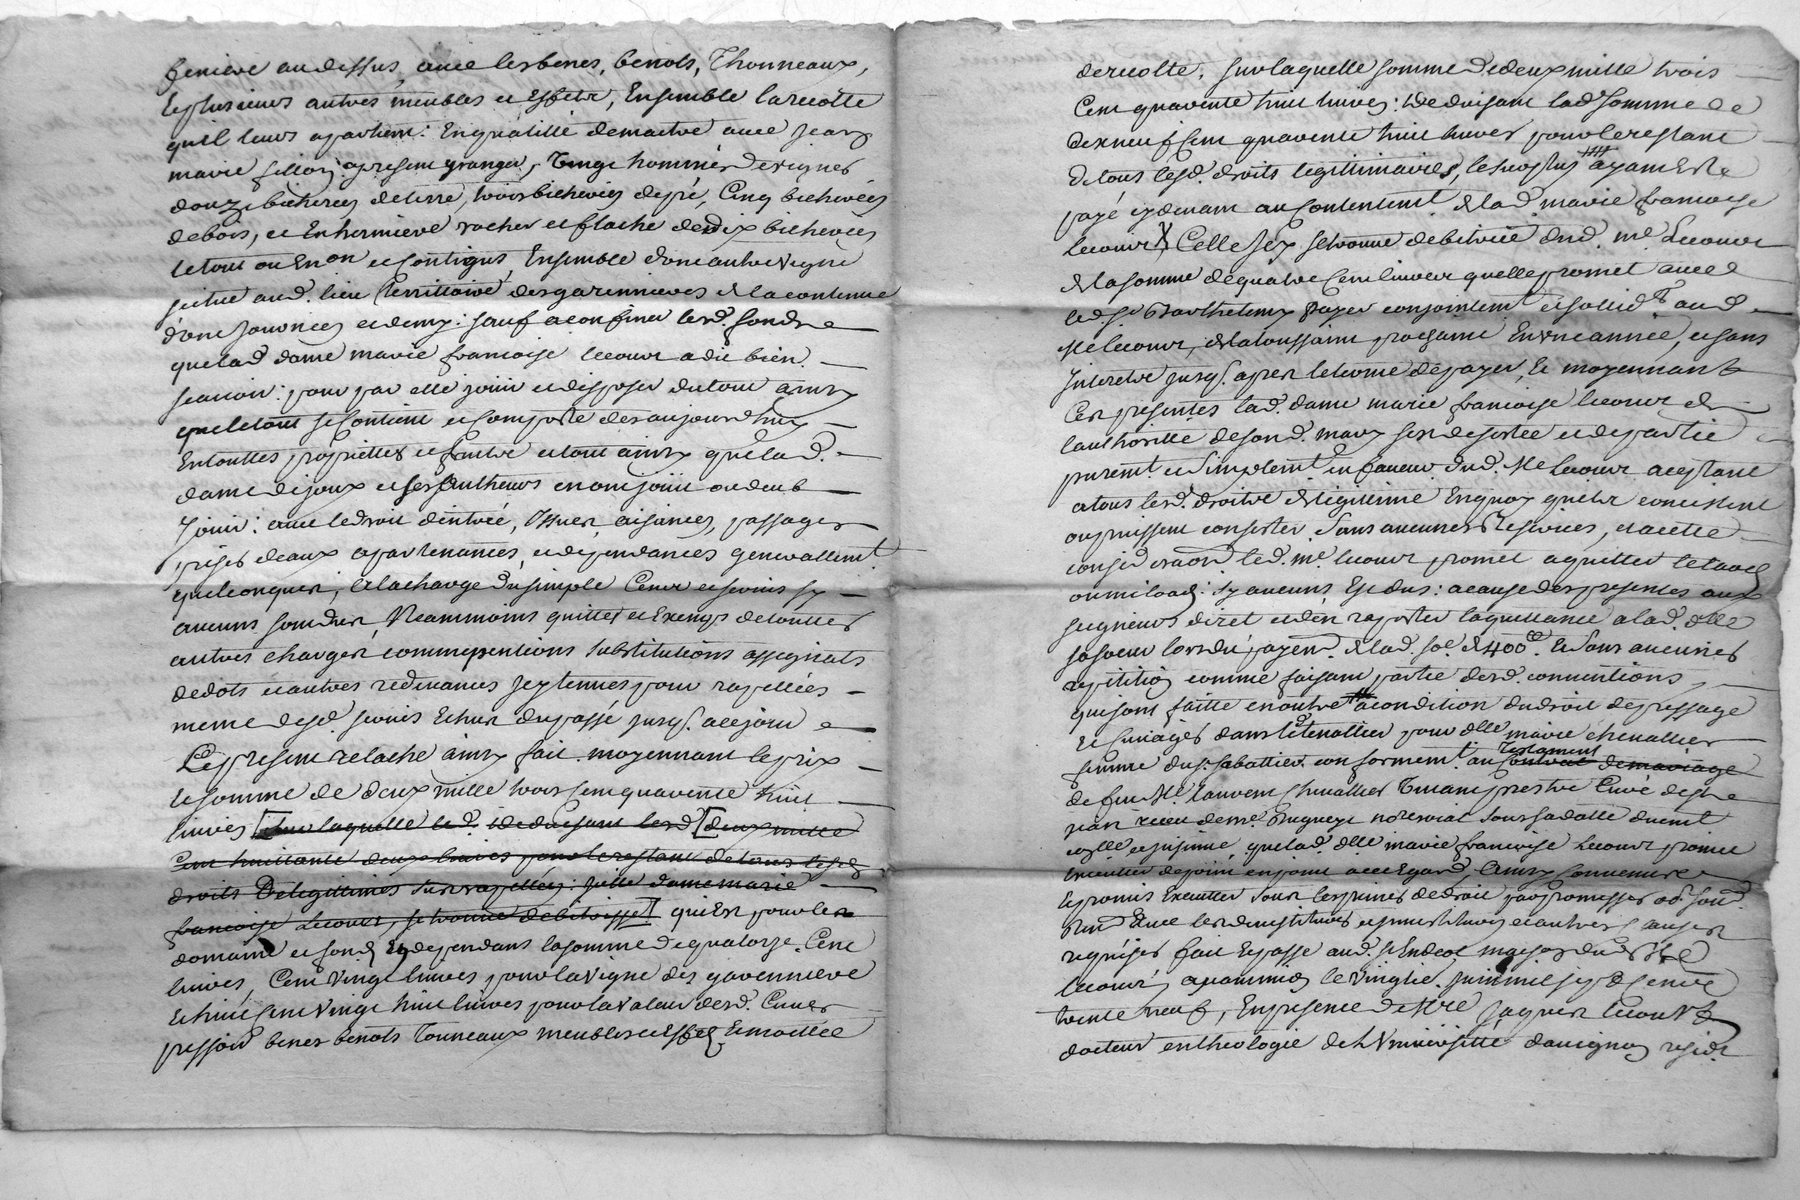 feniere au dessus, avec les benes, benots, Thonneaux,
et plusieurs autres meubles et Effets, Ensemble la recolte
qu'il leurs apartient: En qualitté de maitre avec Jean
marie fillon apresent granger, Vingt hommées de vignes
douze bicherées de terre, trois bicherées de pré, Cinq bicherées
de bois, et En hermiere rocher et flache de dix bicherées
le tout ou En on et Contigus, Ensemble d'une autre vigne
scitue aud. lieu territtoire des garennieres de la contenue
d'une Journées et demy: sauf a confiner lesd. fonds
que lad dame marie francoise lecour a dit bien
scavoir: pour par elle jouir et disposer du tout ainsy
que le tout se Contient et Comporte des aujourd'huy
En touttes proprietté et fruits et tout ainsy que lad.
dame dejoux et ses autheurs en ont joüi ou deub
Jouir: avec le droit d'entrée, Issues, aisances, passages
prises deaux apartenances, et dependances generallemt.
quelconques, a la charge du simple Cens et servis sy
aucuns sont dus, Neammoins quitte et Exempt de touttes
autres charges comme pentions substitutions assignats
de dots et autres redevances sey tenues pour rapellées
meme desd. servis Echus du passé jusq. a ce jour
Le present relache ainsy fait moyennant le prix
et somme de deux mille trois cent quarente huit
livres [sur laquelle led. deduisant lesd [deux mille
Cent huittante deux livres pour le restant de tous lesd
droits De legittimes sus rapellés: ditte dame marie
francoise Lecour, se trouve debitrisse] qui Est pour les
domaine et fond En dependans la somme de quatorze Cent
livres, Cent vingt livres pour la vigne des garenniere
Et huit cent vingt huit livres pour la valeur desd. Cuves
pressoir benes benots Tonneaux meubles et Effets Et moittée
de recolte; sur laquelle somme de deux mille trois
Cent quarente huit livres: deduisant lad somme de
dix neuf Cent quarente huit livres pour le restant
de tous lesd. droits legittimaires, le surplus ayant Esté
payé cy devant au Contentemt de lad marie francoise
lecour Celle Icy se trouve debitrice dud. me. Lecour
de la somme de quatre Cent livres quelle promet avec
led. sr Barthelemy payer conjointemt et sollidt aud
Me lecour, a la toussaint prochaine En une année, et sans
Interetz jusq. apres le terme de payer, Et moyennant
Ces presentes lad. dame marie francoise lecour de
l'authoritté de sond. mary sest desistée et departie
puremt et simplemt en faveur dud. Me lecour aceptant
a tous lesd. droits de legittime En quoy qu'ils concistent
ou puissent consister sans aucunes Reserves, et a cette
consideraon led. me lecour promet aquitter le laod
ou milaod: sy aucuns Est dus: a cause des presentes aux
seigneurs direct et d'en raporter la quittance a lad. dlle
sa soeur lors du payemt. de lad. soe. de 400ll. Et sans aucunes
repetition comme faisant partie desd. conventions,
que sont faitte en outre a condition du droit de passage
Et Cuvages dans le tenallier pour dlle marie chevallier
femme du sr. sabattier conformemt. au Testament Contrat de mariage
de feu Me. Laurent Chevallier Vivant prestre Curé de
recu de me. notere sous sa datte duemt
et insinué, que lad. dlle marie francoise Lecour promet
Executter de point en point a cet Egard, Ainsy Convenu
Et promis Executter sous les peines de droit par promesses od. sond.
avec les et autres Clauses
requises fait Et passé aud. maison dud
lecour, apres midy le vingt Juin mil sept cent
trente neuf, En presence de Mre Jaques lecour
docteur en theologie de l'Université d'avignon resid.